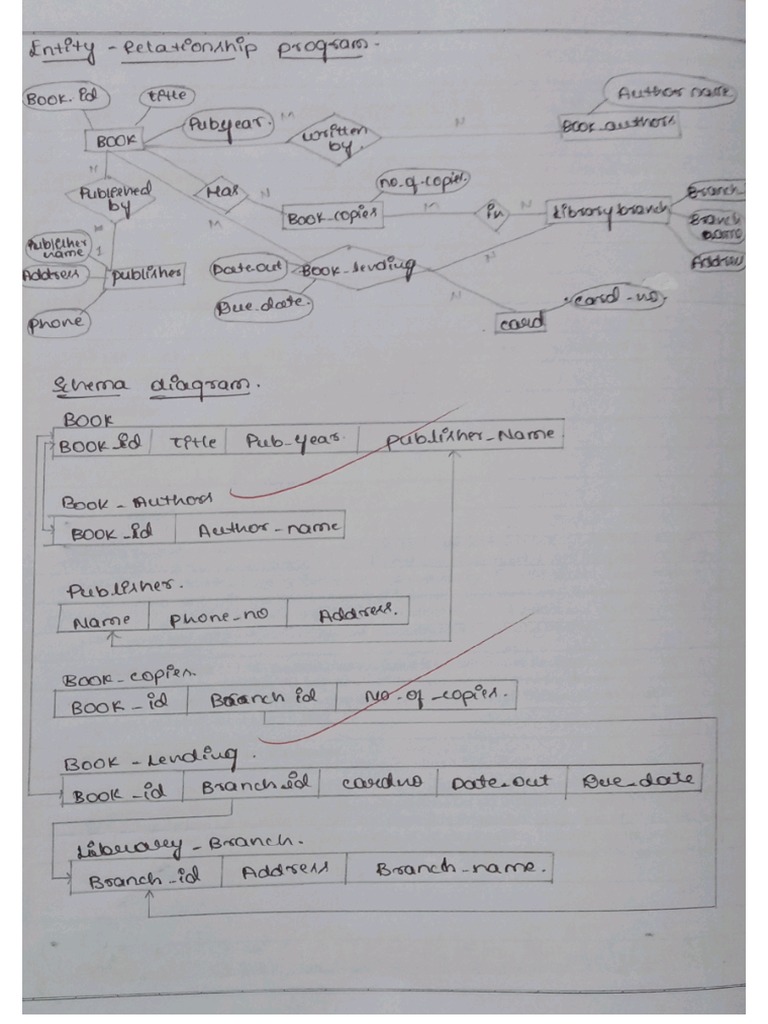 Entity - Relationship program.
Book.id
title
Author name
Pubyear.
M
N
written by
Book_authors
BOOK
N
Published by
Has
N
no.of.copies.
Branch
M
Book_copies
M
in
N
Library branch
Branch name
Publisher name
1
Address
publisher
Date out
Book_lending
N
Address
phone
Due_date.
N
card
card_no.
Schema diagram.
BOOK
BOOK_id title Pub_year. publisher_Name
BOOK_Author
BOOK_id Author_name
Publisher.
Name phone_no Address.
BOOK_copies.
BOOK_id Branch id no.of_copies.
BOOK_Lending.
BOOK_id Branch_id cardno Date_out Due_date
Branch.
Branch_id Address Branch_name.